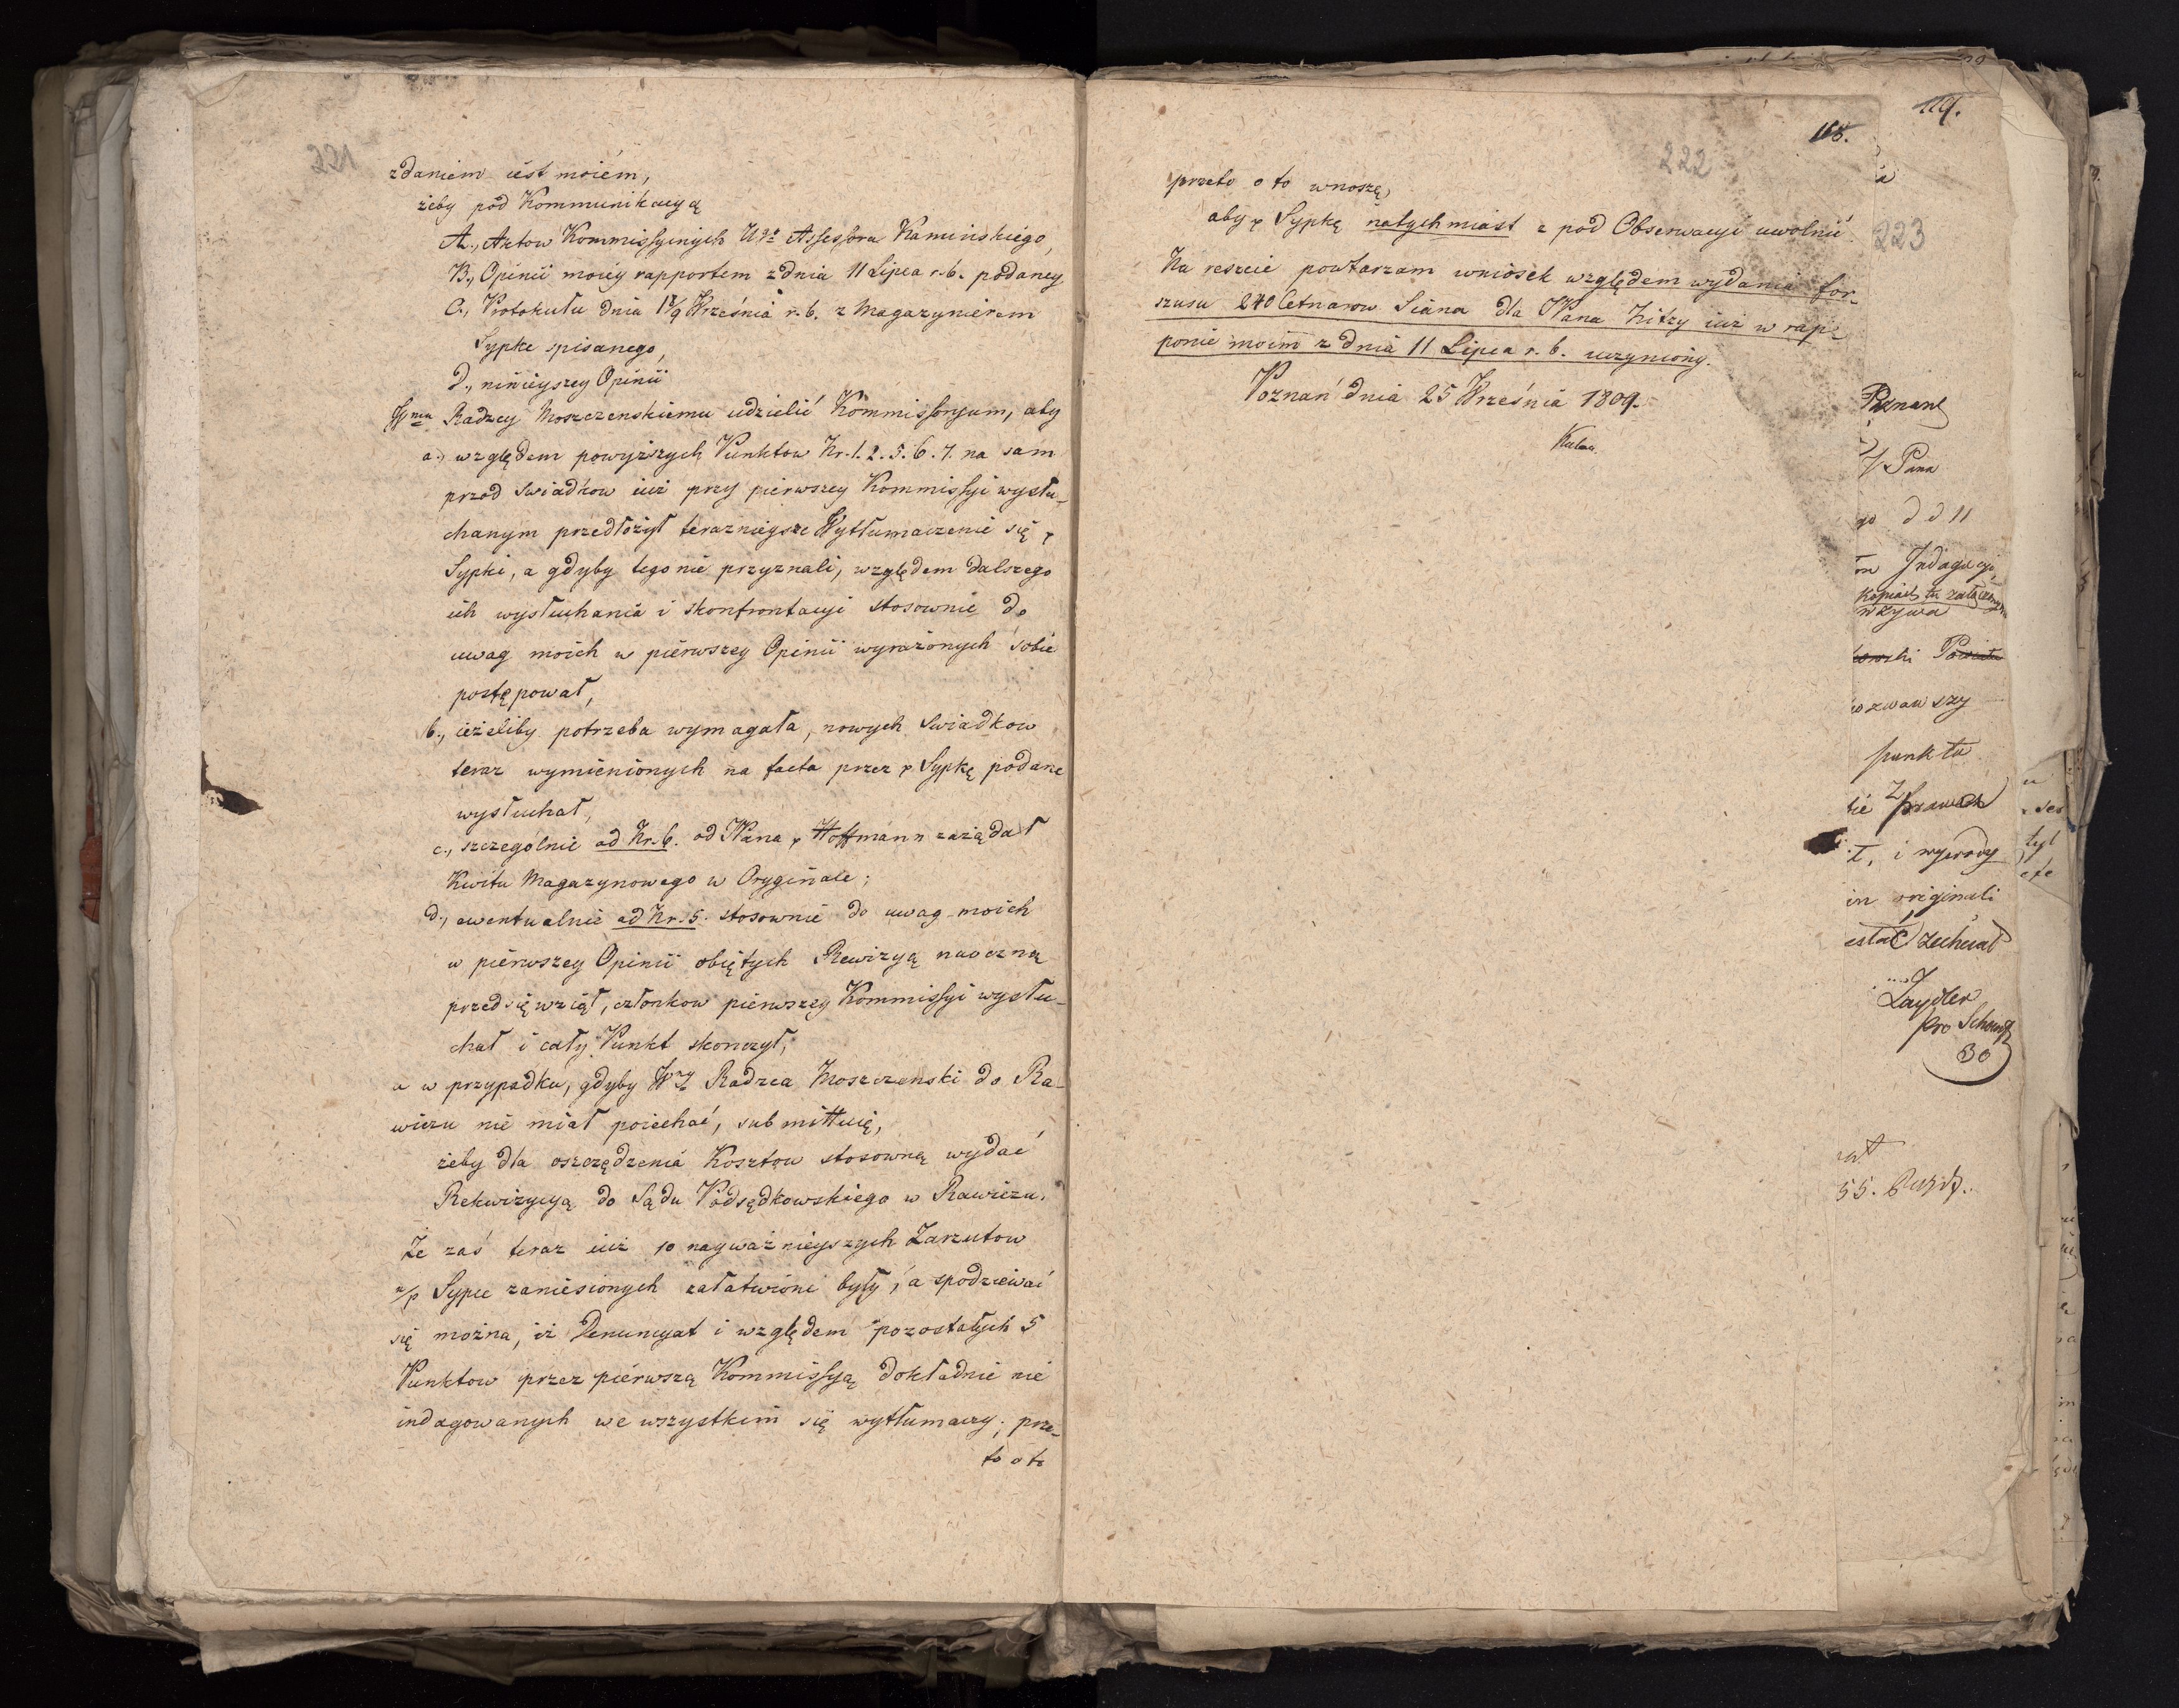 221
zdaniem iest moiém,
żeby pod Kommunikacyą
A., Aktow Kommissyinych Ugo Assessora Kaminskiego,
B., Opinii moiéy rapportem z dnia 11 Lipca r. b. podaney
C., Protokułu dnia Września r. b. z Magazynierem
Sypke spisanego,
D., ninieyszey Opinii
Wmu Radzcy Moszczenskiemu udzielić Kommissoryum, aby
a., względem powyższych Punktow Nr. 1. 2. 3. 6. 7. na sam
przod swiadkow iuż przy pierwszey Kommissyi wysłu-
chanym przedłożył terazniéysze Wytłumaczenie się p
Sypki, a gdyby tego nie przyznali, względem dalszego
ich wysłuchania i skonfrontacyi stosownie do
uwag moich w piérwszey Opinii wyrażonych sobie
postępował,
b., ieżeliby potrzeba wymagała, nowych Swiadkow
teraz wymienionych na facta przez p Sypkę podane
wysłuchał,
c., szczegolnie ad Nr. 6. od JPana p Hoffmann zażądał
Kwitu Magazynowego w Oryginale;
d., ewentualnie ad Nr. 5. stosownie do uwag moich
w piérwszey Opinii obiętych Rewizyą naoczną
przedsięwziął, członkow pierwszey Kommissyi wysłu-
chał i cały Punkt skonczył;
a w przypadku, gdyby Wny Radzca Moszczenski do Ra-
wicza nie miał poiechać, submittuię,
żeby dla oszczędzenia Kosztow stosowną wydać
Rekwizycyą do Sądu Podsędkowskiego w Rawiczu.
Że zaś teraz iuż 10 nayważnieyszych Zarzutow
n/p Sypce zaniesionych załatwione były, a spodziewać
się można, iż Denuncyat i względem pozostałych 5
Punktow przez piérwszą Kommissyą dokładnie nie
indagowanych we wszystkiém się wytłumaczy; prze-
to o to
118.
222
przeto o to wnoszę,
aby p Sypkę natychmiast z pod Obserwacyi uwolnić
Na reszcie powtarzam wniosek względem wydania for-
szusu 240 Cetnarow Siana dla JPana Zitzy iuż w rap-
porcie moim z dnia 11 Lipca r. b. uczyniony.
Poznań dnia 25 Września 1809.
119.
223
Poznany
Pana
go d d 11
Indagacyi
kopiach tu załączonym
wzywa
wezwawszy
punkta
i wywody
in originali
zechciał
Zaydler
pro
30
55.